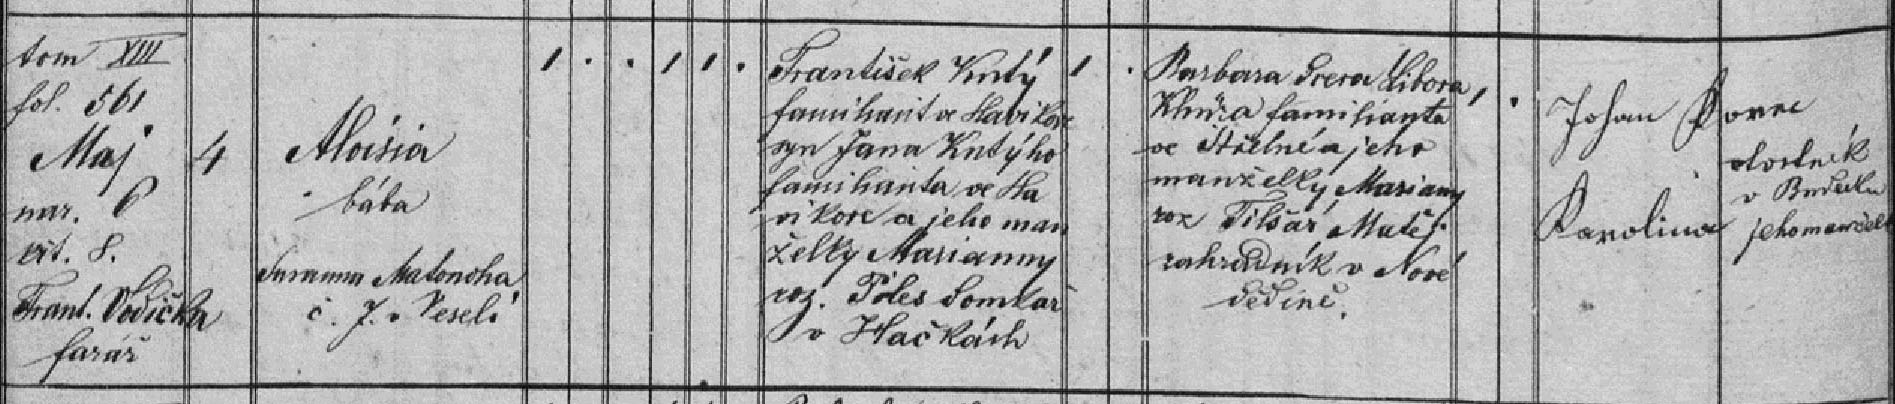 tom XIII
fol. 561
Maj
nar. 6
křt. 8.
Frant. Vodička
farář
4
Aloisia
bába
Susanna Matouscha
č. 7. v Veseli
1 . . 1 1 .
František Kutý
familiant ve Slavikove
syn Jana Kutýho
familianta ve Sla
vikove a jeho man
želky Marianny
roz. Poles
v Hačkách
1 .
Barbara dcera Libora
familianta
ve Střelné a jeho
manželky Marianny
roz Tilšar Matěj
zahradník v Nové
dědině.
1 .
Johan
v
Karolina jeho manželk